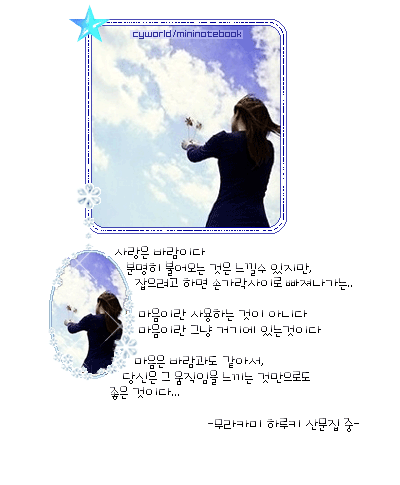 cyworld/mininotebook
사랑은 바람이다
분명히 불어오는 것은 느낄수 있지만,
잡으려고 하면 손가락사이로 빠져나가는..
마음이란 사용하는 것이 아니다
마음이란 그냥 거기에 있는것이다
마음은 바람과도 같아서,
당신은 그 움직임을 느끼는 것만으로도
좋은 것이다...
-무라카미 하루키 산문집 중-